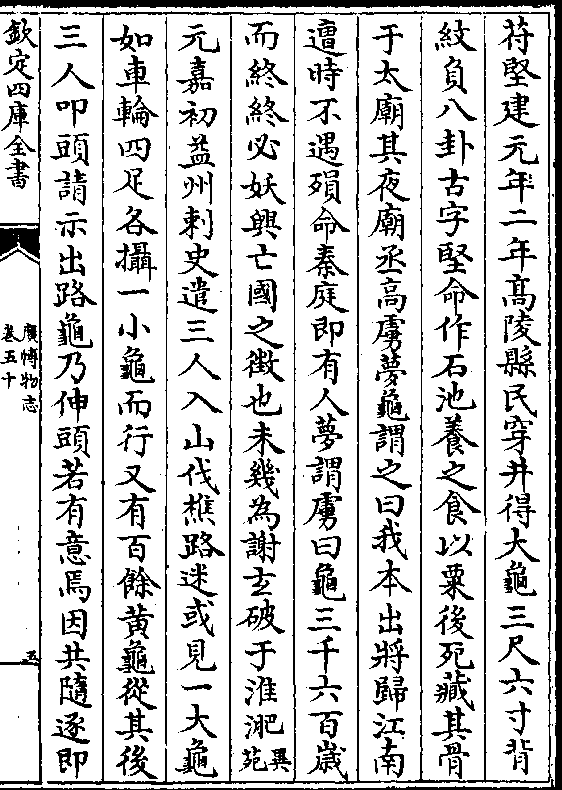 苻堅建元年二年髙陵縣民穿井得大龜三尺六寸背
紋負八卦古字堅命作石池養之食以粟後死藏其骨
于太廟其夜廟丞高虜夢龜謂之曰我本出將歸江南
遭時不遇殞命秦庭即有人夢謂虜曰龜三千六百歳
而終終必妖興亡國之徴也未幾為謝玄破于淮淝異苑
元嘉初益州刺史遣三人入山伐樵路迷或見一大龜
如車輪四足各攝一小龜而行又有百餘黄龜從其後
三人叩頭請示出路龜乃伸頭若有意焉因共隨逐即
欽定四庫全書
廣博物志
卷五十
五